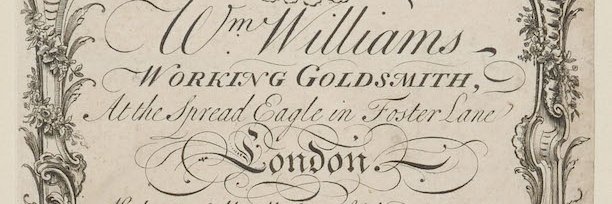 Wm. Williams
WORKING GOLDSMITH,
At the Spread Eagle in Foster Lane
London.